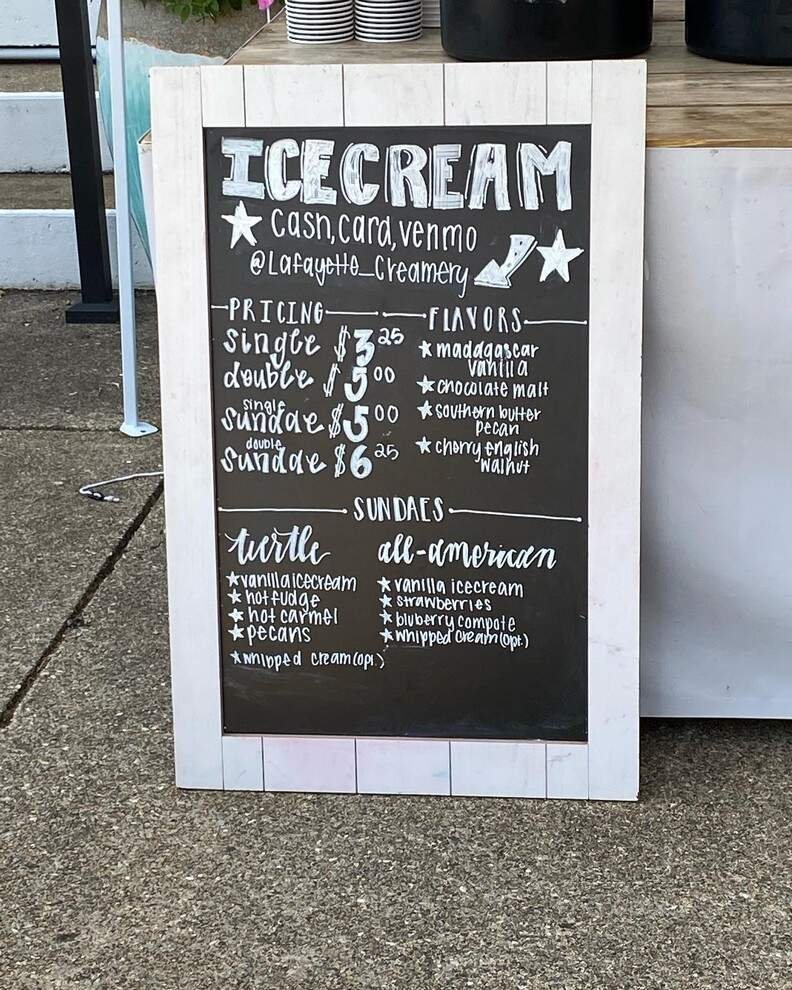 ICECREAM
Cash, card, venmo
@Lafayette_Creamery
PRICING
single $3.25
double $5.00
single
sundae $5.00
double
sundae $6.25
FLAVORS
madagascar
vanilla
chocolate malt
southern butter
pecan
cherry english
walnut
SUNDAES
turtle
vanilla icecream
hot fudge
hot carmel
pecans
whipped cream (opt.)
all-american
vanilla icecream
strawberries
bluberry compote
whipped cream (opt.)